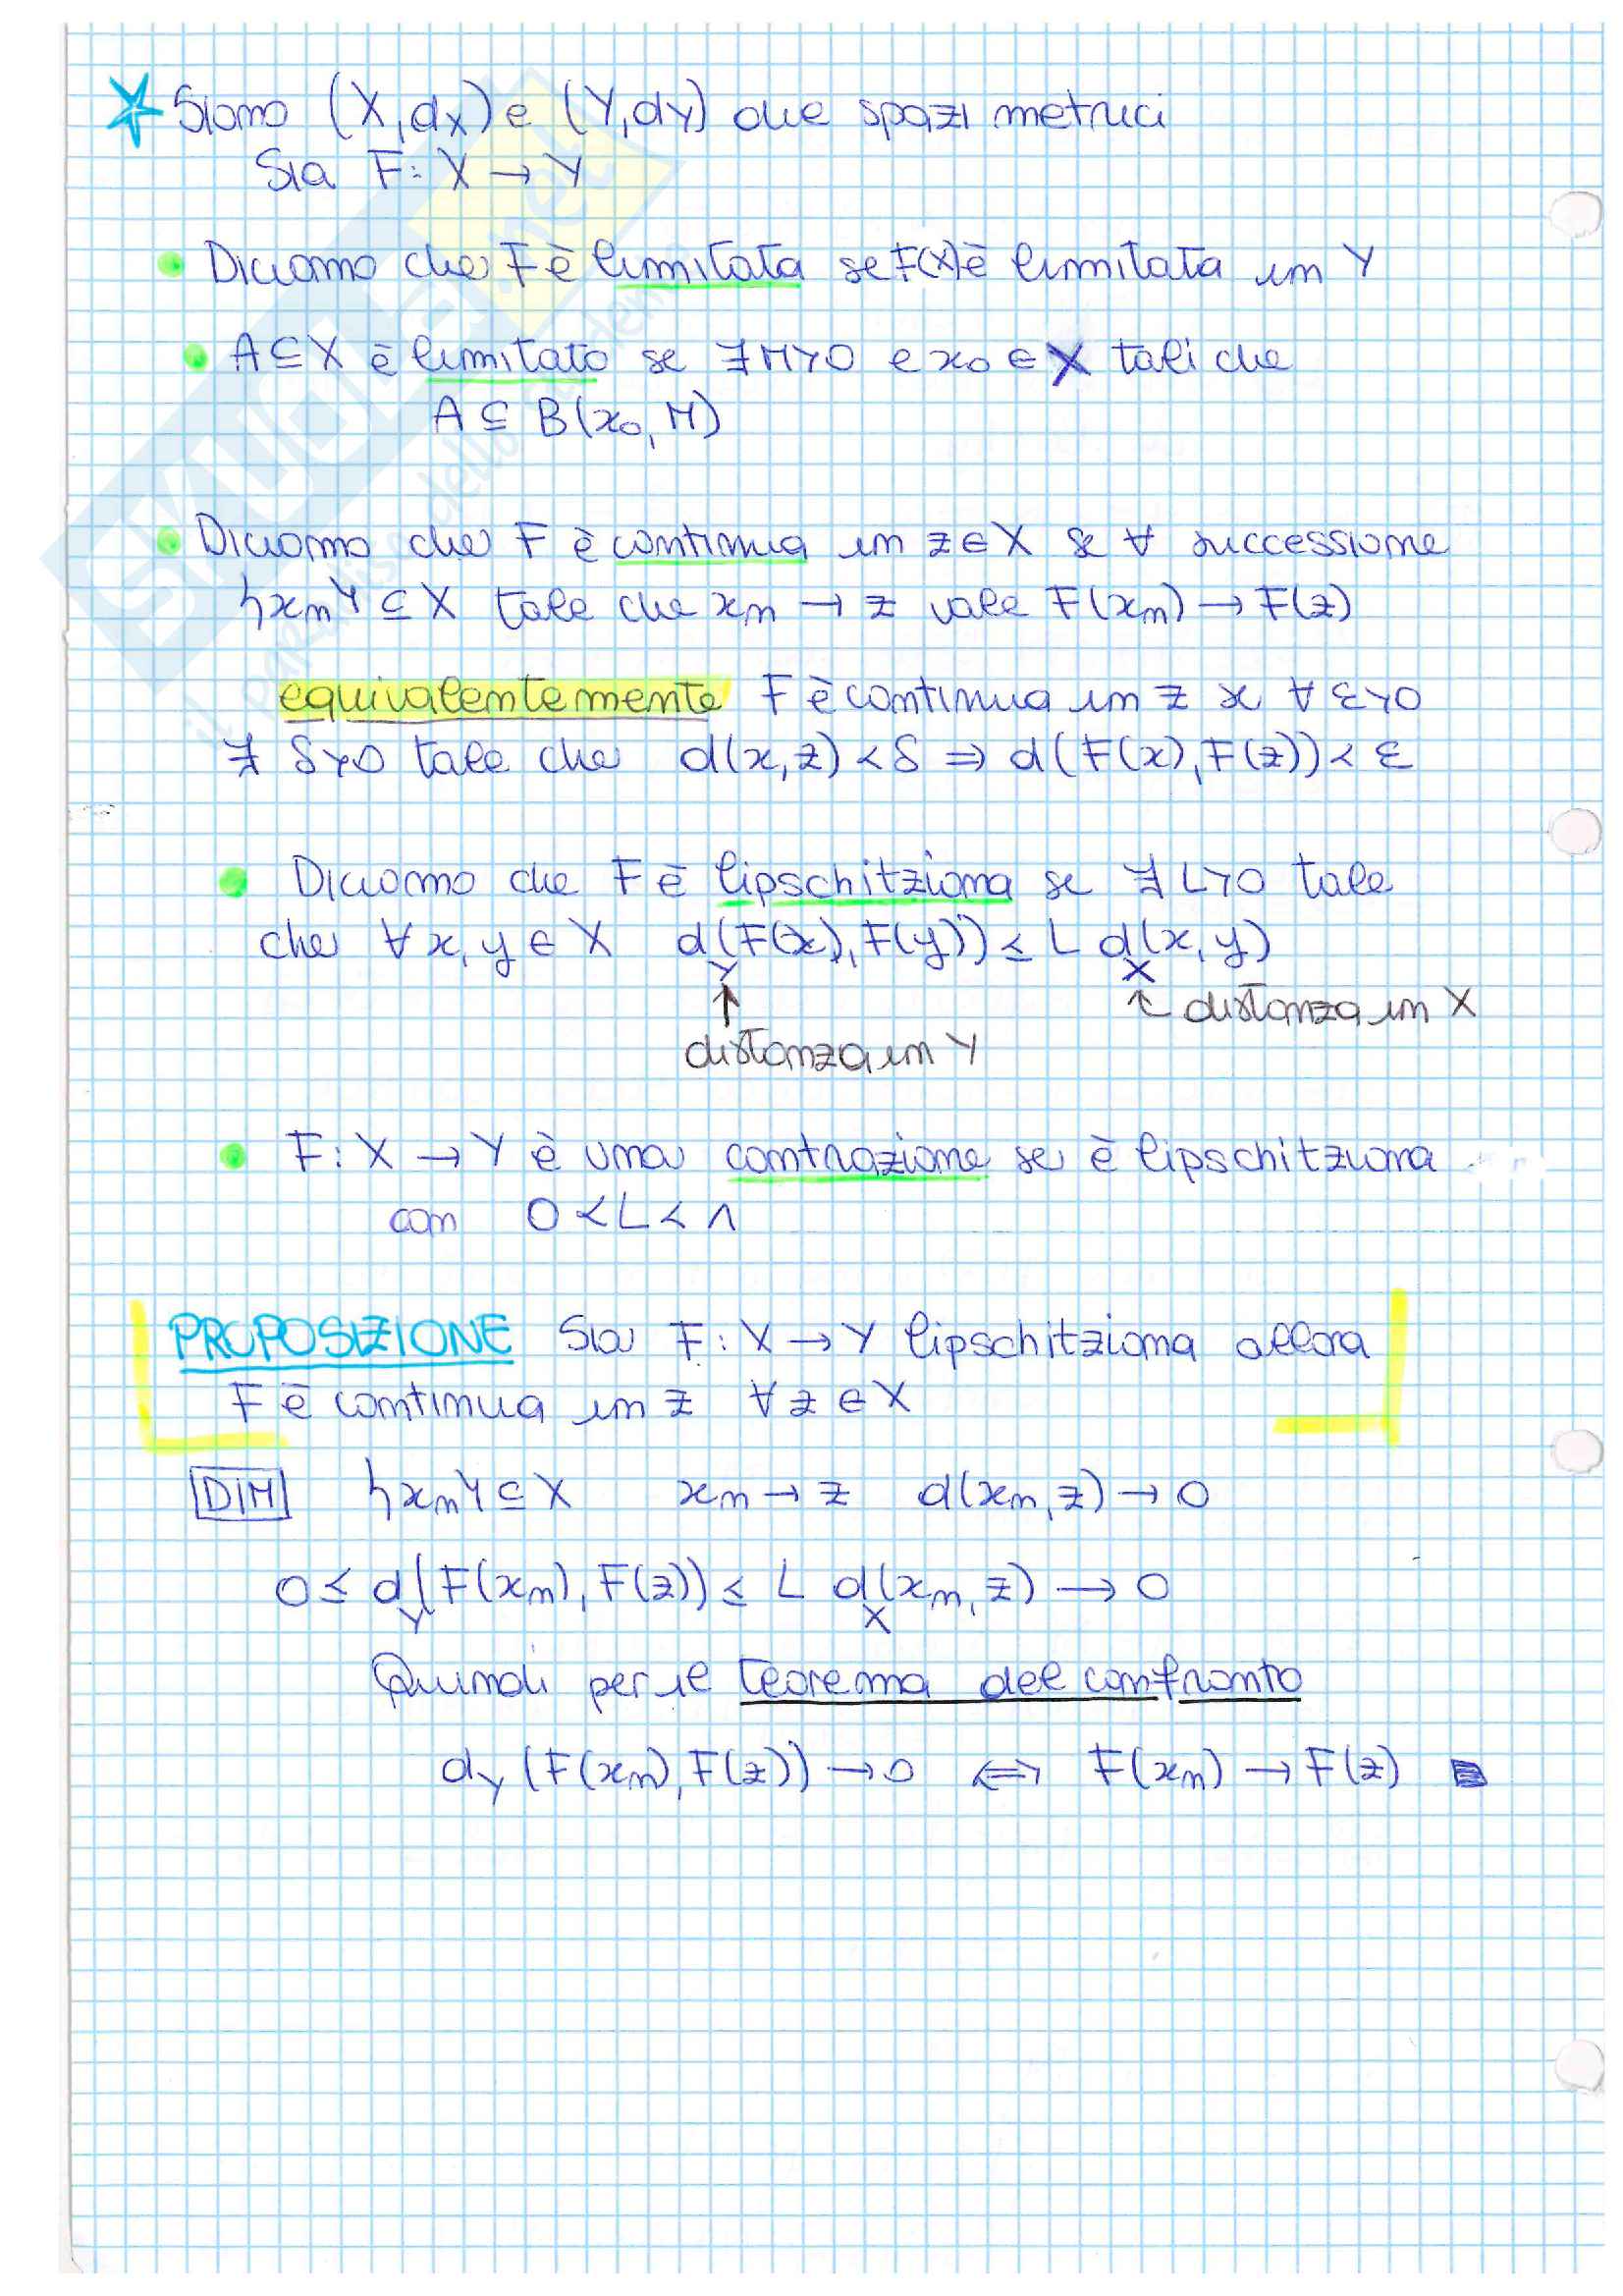 Siano (X, dx) e (Y, dy) due spazi metrici
Sia F: X → Y
• Diciamo che F è limitata se F(X) è limitata in Y
• A ⊆ X è limitato se ∃ M>0 e x₀ ∈ X tali che
A ⊆ B(x₀, M)
• Diciamo che F è continua in z ∈ X se ∀ successione
{xₙ} ⊆ X tale che xₙ → z vale F(xₙ) → F(z)
equivalentemente F è continua in z se ∀ ε>0
∃ δ>0 tale che d(x,z) < δ ⇒ d(F(x), F(z)) < ε
• Diciamo che F è lipschitziana se ∃ L>0 tale
che ∀ x, y ∈ X d_Y(F(x), F(y)) ≤ L d_X(x, y)
↖ distanza in X
↑ distanza in Y
• F: X → Y è una contrazione se è lipschitziana
con 0 < L < 1
PROPOSIZIONE Sia F: X → Y lipschitziana allora
F è continua in z ∀ z ∈ X
DIM {xₙ} ⊆ X xₙ → z d(xₙ, z) → 0
0 ≤ d_Y(F(xₙ), F(z)) ≤ L d_X(xₙ, z) → 0
Quindi per il teorema del confronto
d_Y(F(xₙ), F(z)) → 0 ⟺ F(xₙ) → F(z)
SKUOLA.net
il paradiso dello studente